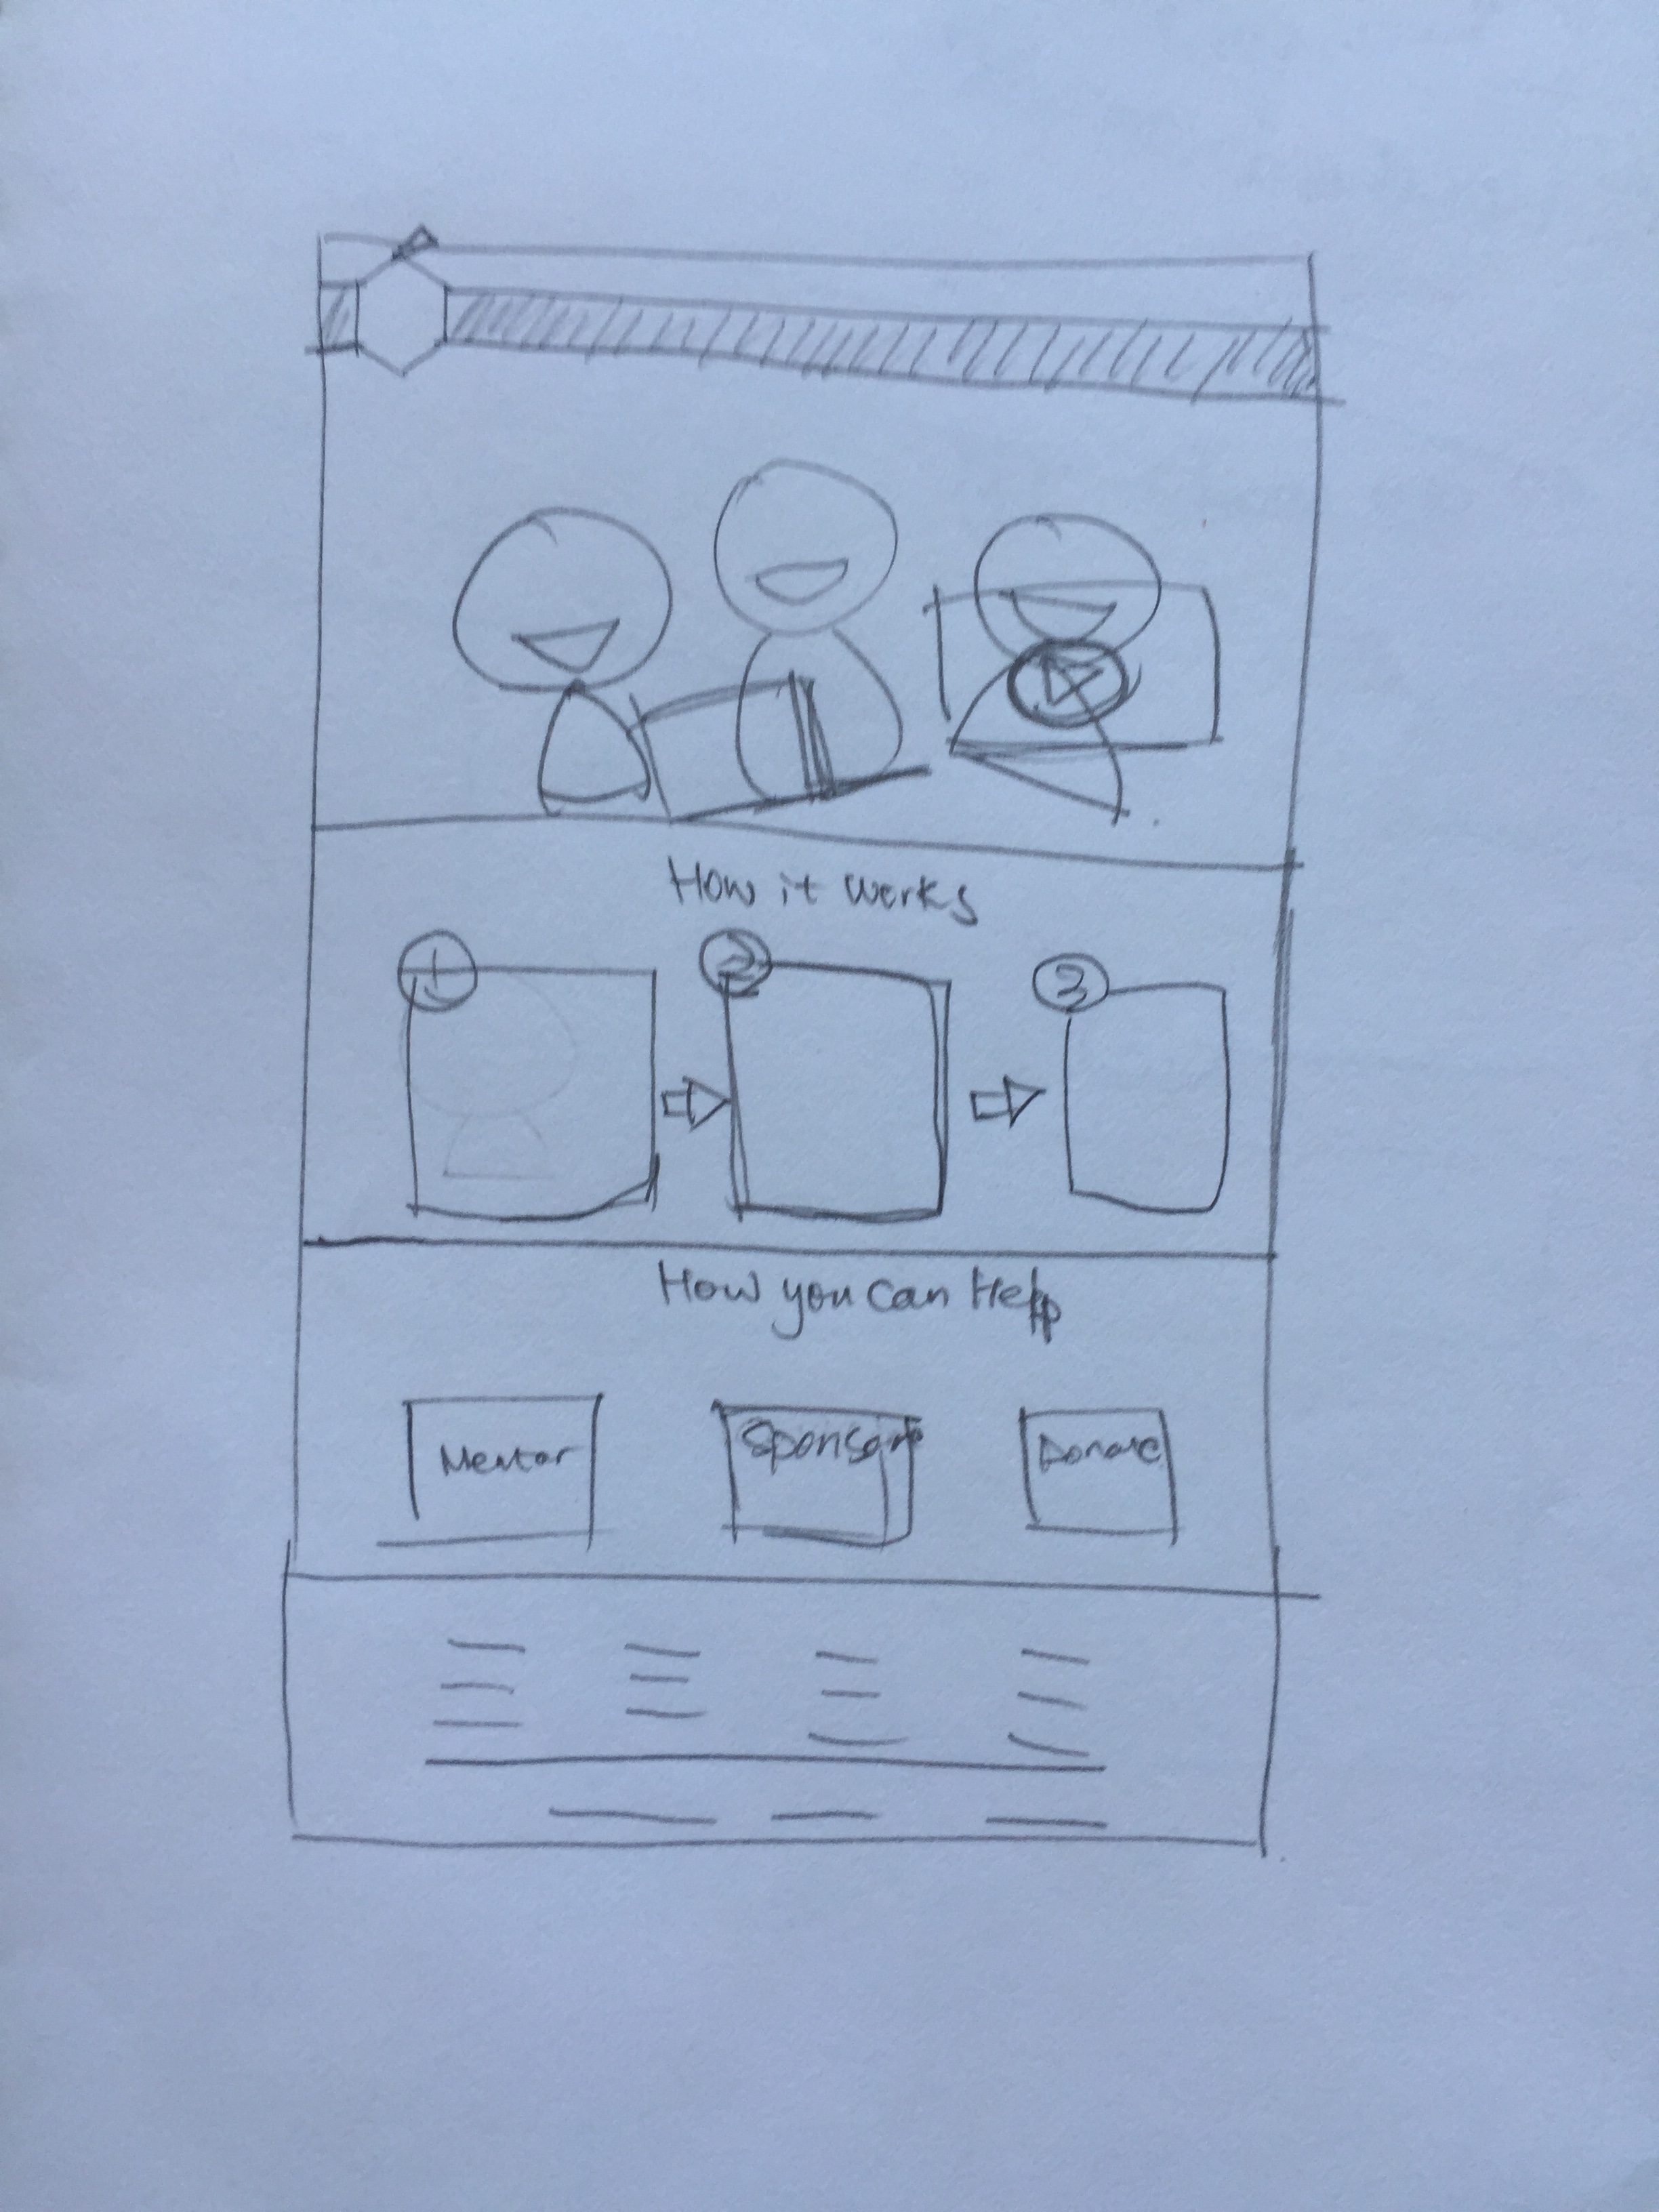 How it works
1 2 3
How you can Help
Mentor Sponsor Donate